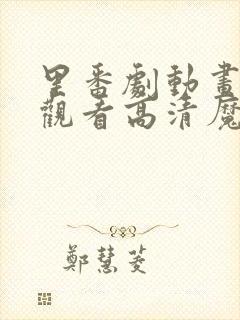 里番劇動畫
觀看高清魔
鄭慧菱